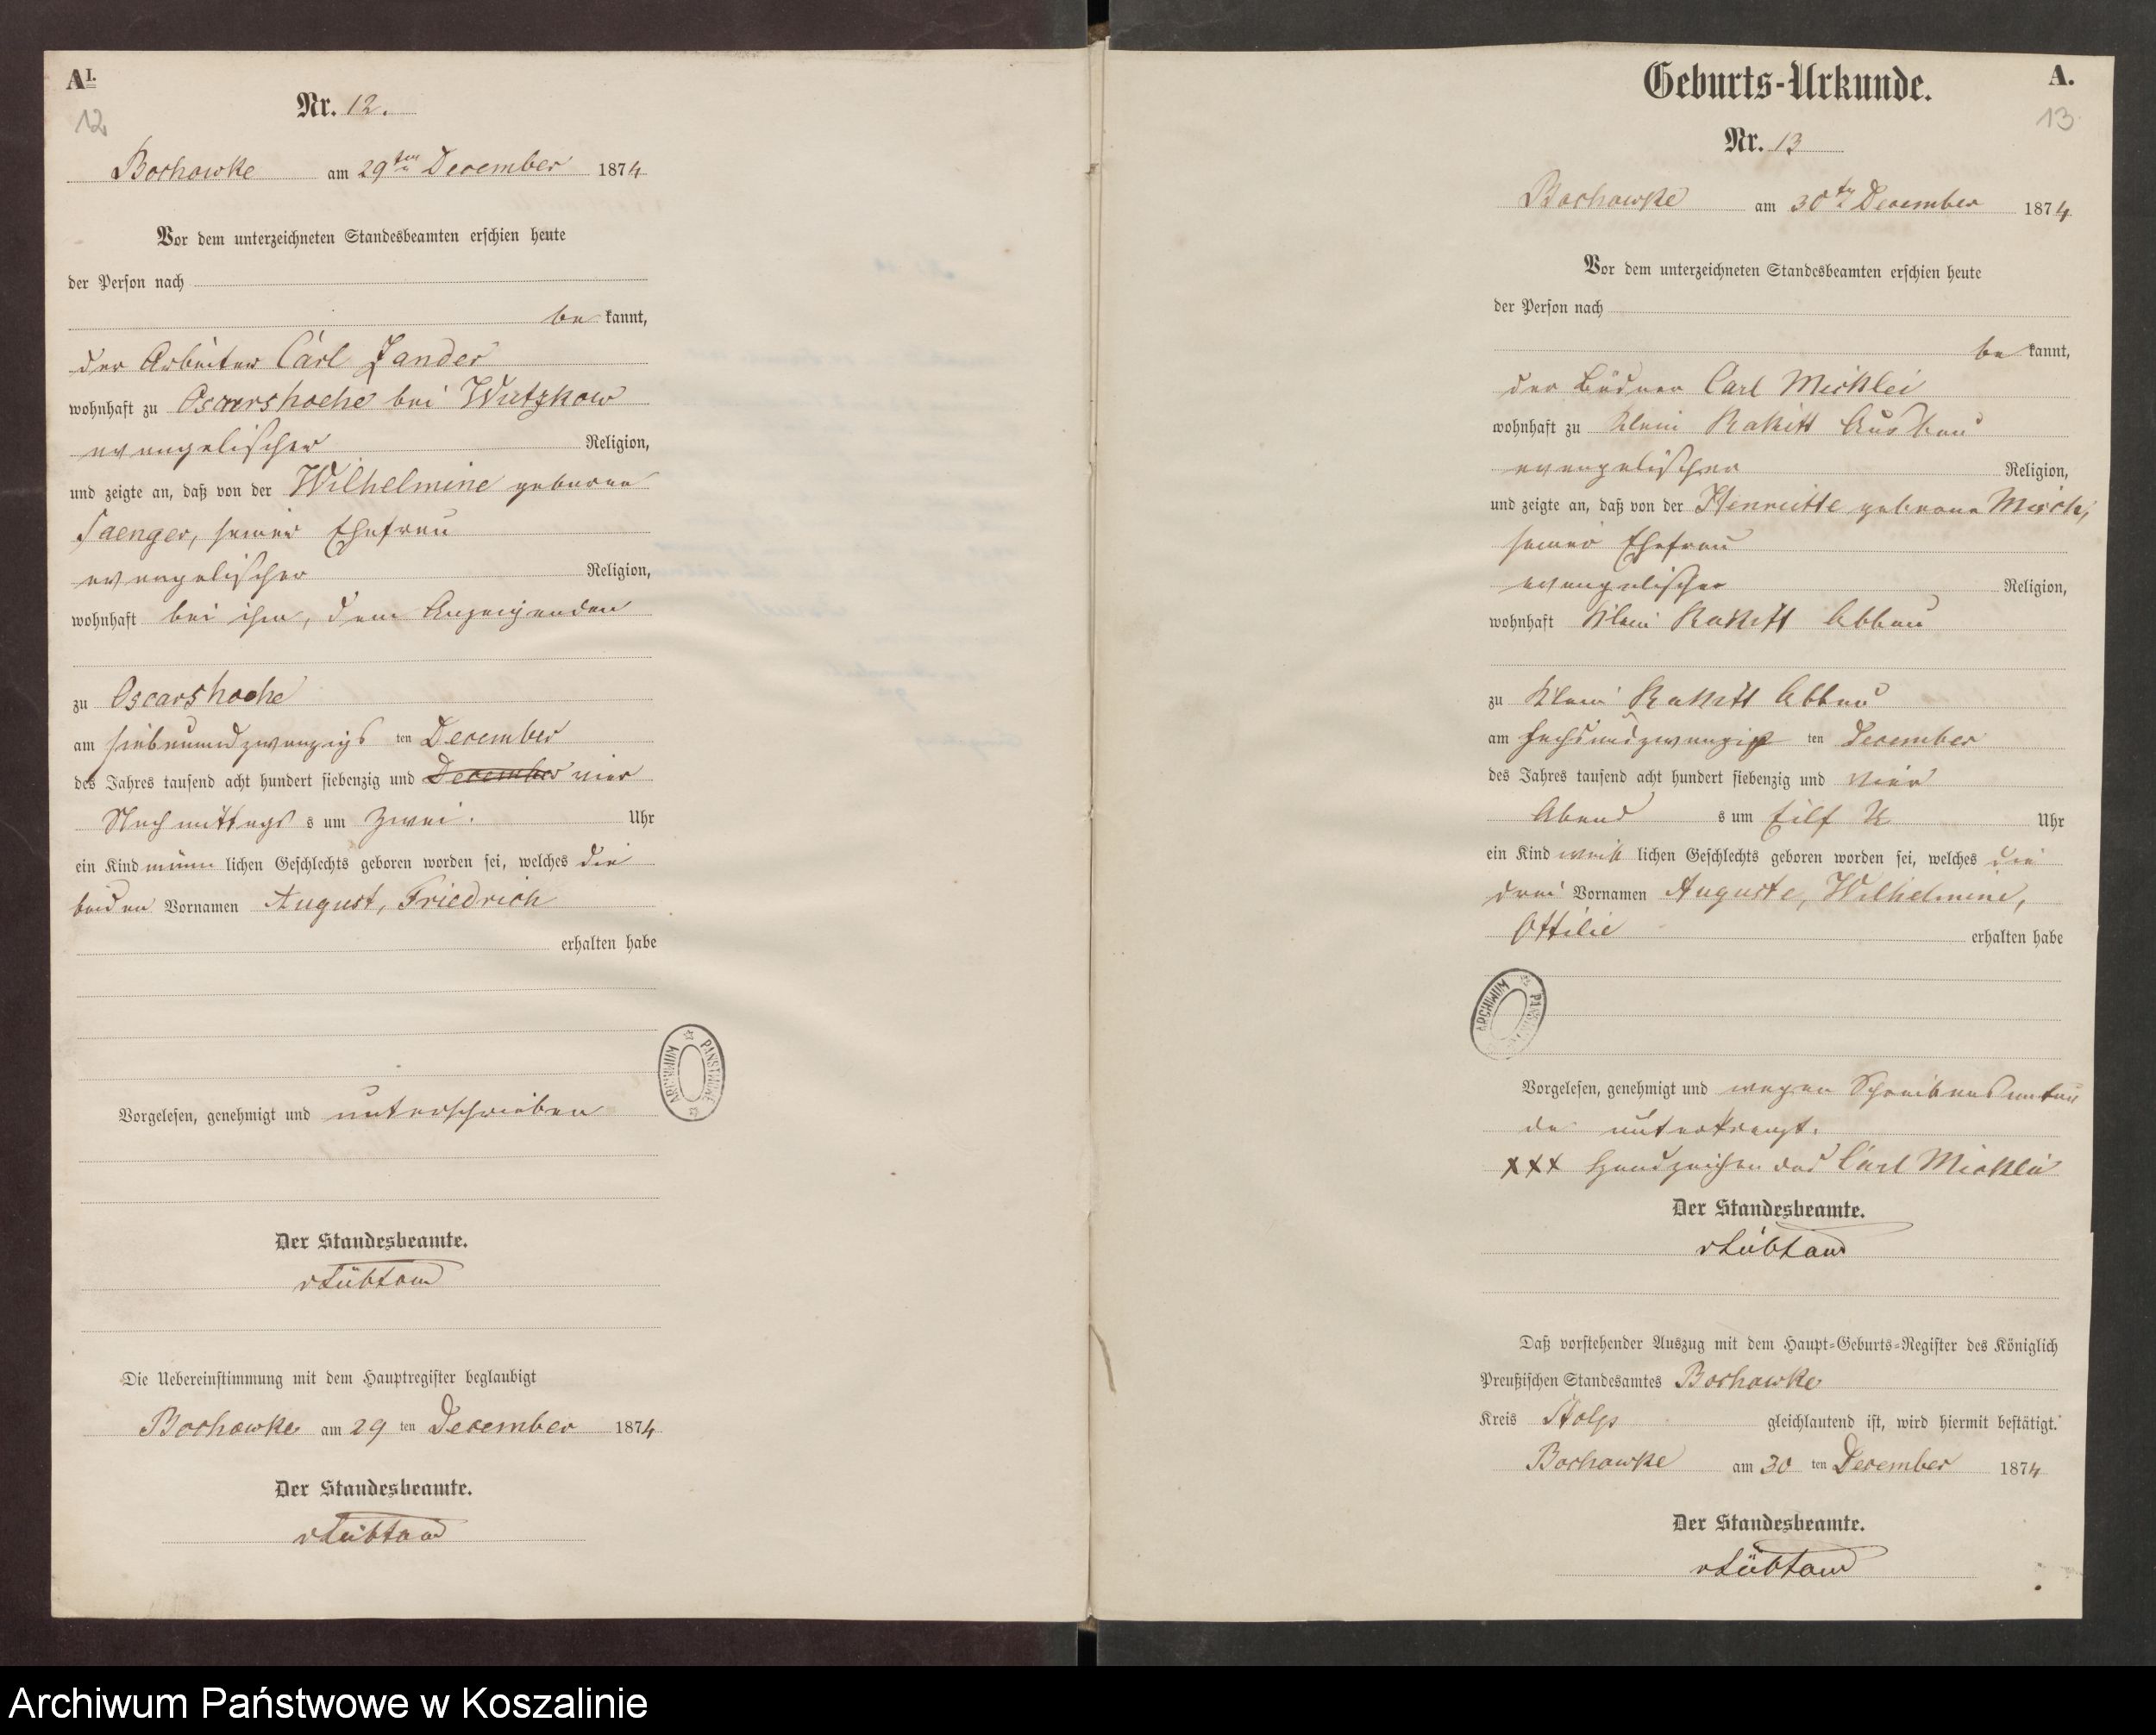 A I.
12
Nr. 12.
Bochowke am 29ten December 1874
Vor dem unterzeichneten Standesbeamten erschien heute
der Person nach
be kannt,
der Arbeiter Carl Zander
wohnhaft zu Oscarshoehe bei Wutzkow
evangelischer Religion,
und zeigte an, daß von der Wilhelmine geborene
Saenger, seiner Ehefrau
evangelischer Religion,
wohnhaft bei ihm, dem Anzeigenden
zu Oscarshoehe
am siebenundzwanzigs ten December
des Jahres tausend acht hundert siebenzig und December vier
Nachmittags s um zwei. Uhr
ein Kind männ lichen Geschlechts geboren worden sei, welches die
beiden Vornamen August, Friedrich
erhalten habe
Vorgelesen, genehmigt und unterschrieben
Der Standesbeamte.
Die Uebereinstimmung mit dem Hauptregister beglaubigt
Bochowke am 29 ten December 1874
Der Standesbeamte.
ARCHIWUM PAŃSTWOWE
Geburts-Urkunde. A.
13
Nr. 13
Bochowke am 30ten December 1874
Vor dem unterzeichneten Standesbeamten erschien heute
der Person nach
be kannt,
der Büdner Carl Micklei
wohnhaft zu Klein Rakitt Ausbau
evangelischer Religion,
und zeigte an, daß von der Henriette geborene
seiner Ehefrau
evangelischer Religion,
wohnhaft Klein Rakitt Abbau
zu Klein Rakitt Abbau
am sechsundzwanzigs ten December
des Jahres tausend acht hundert siebenzig und vier
Abend s um Eilf Uhr
ein Kind weib lichen Geschlechts geboren worden sei, welches die
drei Vornamen Auguste, Wilhelmine,
Ottilie erhalten habe
ARCHIWUM
Vorgelesen, genehmigt und wegen Schreibensunkun
de unterkreuzt.
xxx Handzeichen des Carl Micklei
Der Standesbeamte.
Daß vorstehender Auszug mit dem Haupt-Geburts-Register des Königlich
Preußischen Standesamtes Bochowke
Kreis Stolp gleichlautend ist, wird hiermit bestätigt.
Bochowke am 30 ten December 1874
Der Standesbeamte.
Archiwum Państwowe w Koszalinie